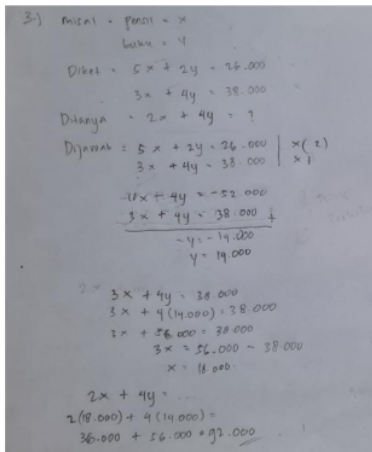 3.) misal = pensil = x
buku = y
Diket = 5x + 2y = 26.000
3x + 4y = 38.000
Ditanya = 2x + 4y = ?
Dijawab = 5x + 2y = 26.000 | x(2)
3x + 4y = 38.000 | x1
10x + 4y = -52.000
3x + 4y = 38.000 +
-y = -14.000
y = 14.000
3x + 4y = 38.000
3x + 4(14.000) = 38.000
3x + 56.000 = 38.000
3x = 56.000 - 38.000
x = 18.000
2x + 4y = ...
2(18.000) + 4(14.000) =
36.000 + 56.000 = 92.000